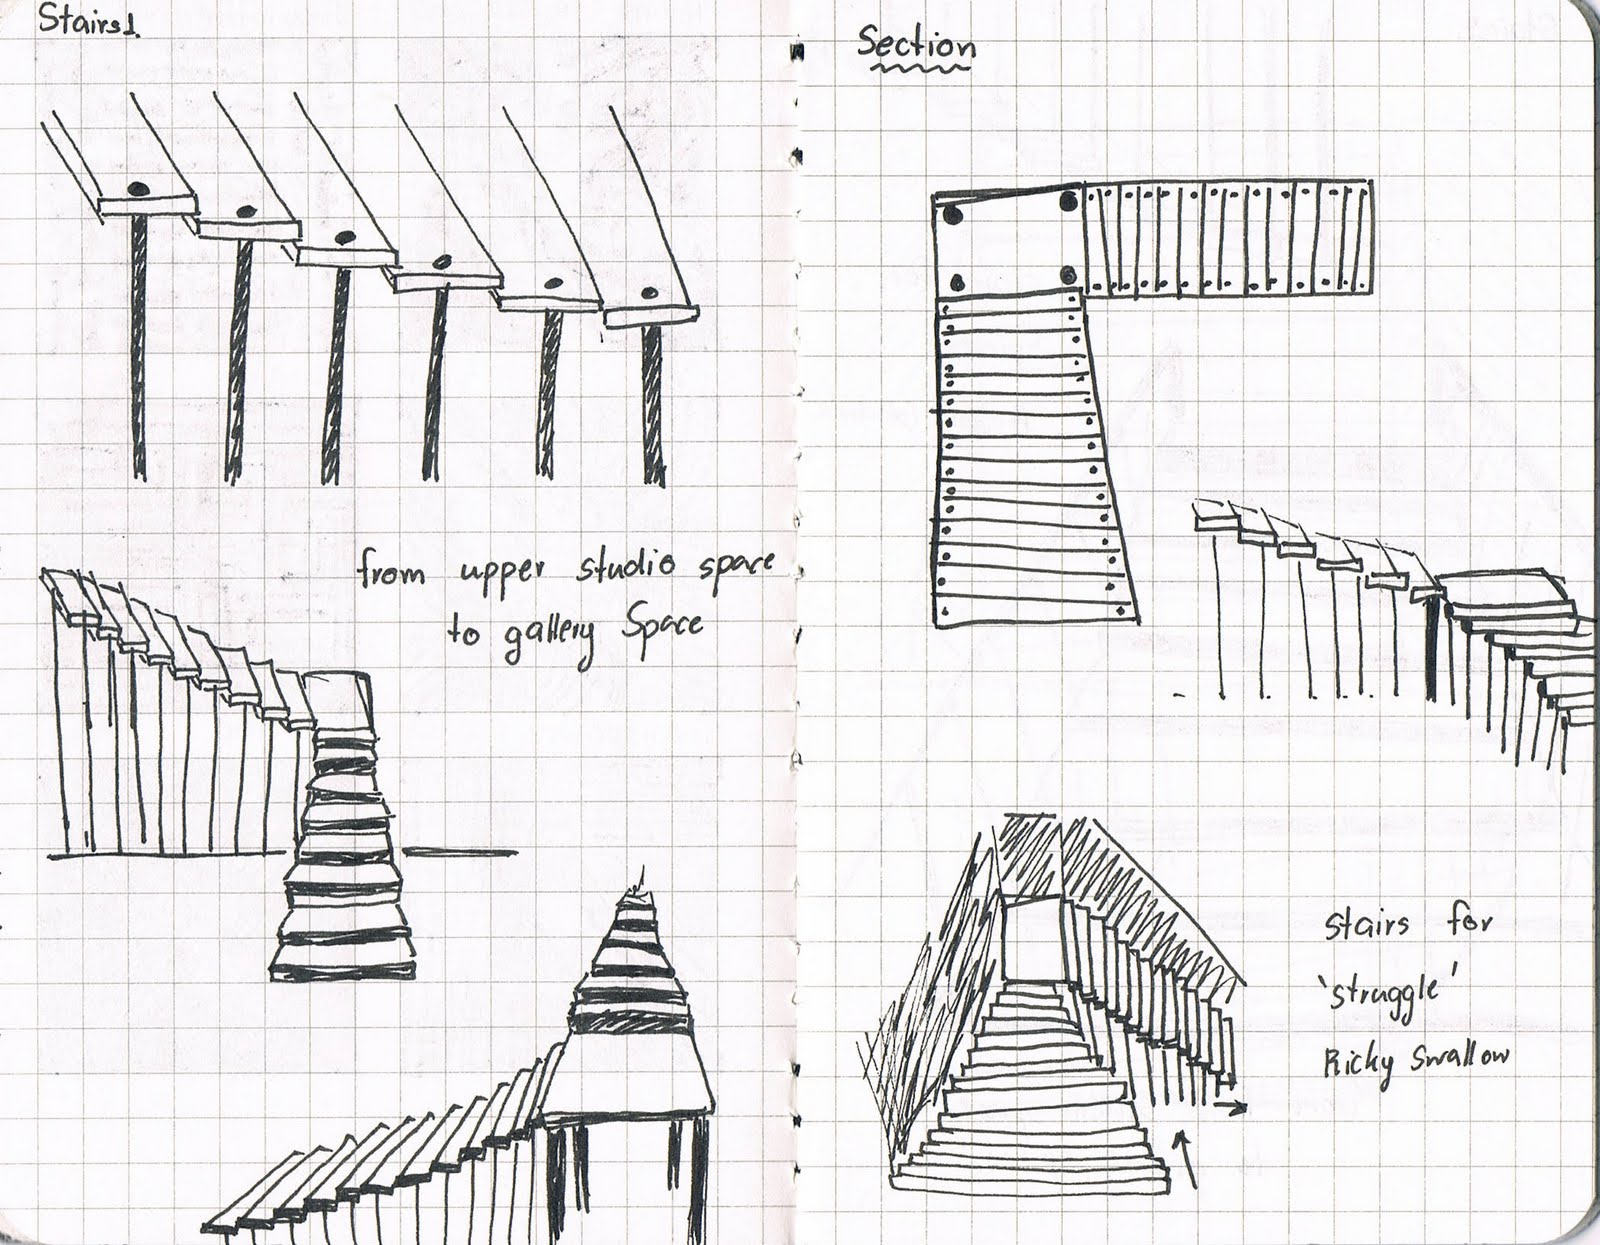 Stairs1.
from upper studio space
to gallery Space
Section
stairs for
'struggle'
Ricky Swallow